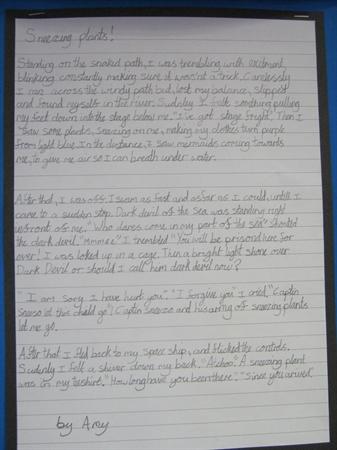 Sneezing plants!
Standing on the snaked path, I was trembling with excitment,
blinking constantly making sure it wasnt a trick. Carelessly
I ran across the windy path but, lost my balance, slipped
and found myself in the river. Sudenly I felt somthing pulling
my feet down into the stage below me. "I've got stage fright". Then I
saw some plants, sneezing on me, making my clothes turn purple
from light blue. In the distance, I saw mermaids coming towards
me, to give me air so I can breath under water.
After that, I was off. I swam as fast and as far as I could, untill I
came to a sudden stop. Dark devil of the Sea was standing right
infront of me. "Who dares come in my part of the sea" shouted
the dark devil. "Mmmee" I trembled "You will be prisond here for
ever! I was loked up in a cage. Then a bright light shone over
Dark Devil or should I call him dark devil now?
"I am sorry I have hurt you" "I forgive you" I cried, "Captin
let this child go"! Captin sneeze and his army of sneezing plants
let me go.
After that I fled back to my space ship, and flicked the controls.
Sudenly I felt a shiver down my back. "Atchoo". A sneezing plant
was on my teeshirt. "How long have you been there". "Since you arived
by Amy